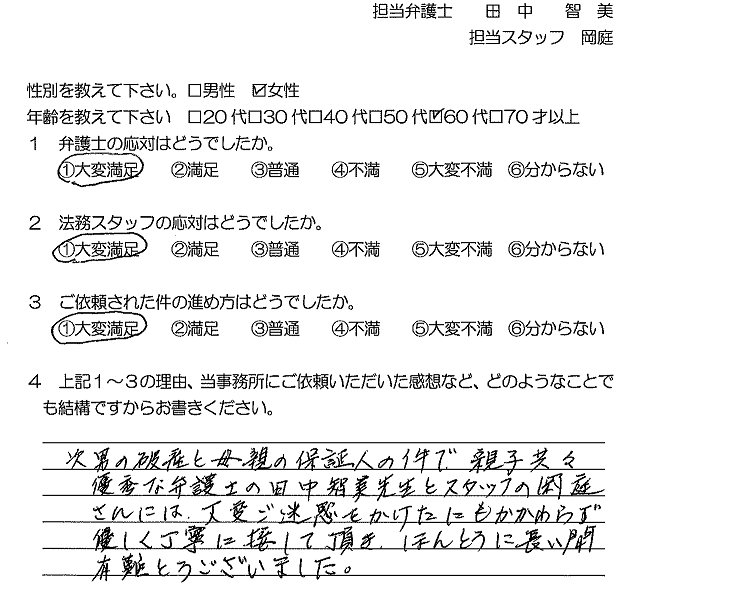 担当弁護士 田 中 智 美
担当スタッフ 岡庭
性別を教えて下さい。□男性 ☑女性
年齢を教えて下さい □20代□30代□40代□50代☑60代□70才以上
1 弁護士の応対はどうでしたか。
①大変満足 ②満足 ③普通 ④不満 ⑤大変不満 ⑥分からない
2 法務スタッフの応対はどうでしたか。
①大変満足 ②満足 ③普通 ④不満 ⑤大変不満 ⑥分からない
3 ご依頼された件の進め方はどうでしたか。
①大変満足 ②満足 ③普通 ④不満 ⑤大変不満 ⑥分からない
4 上記1～3の理由、当事務所にご依頼いただいた感想など、どのようなことで
も結構ですからお書きください。
次男の破産と母親の保証人の件で 親子共々
優秀な弁護士の田中智美先生とスタッフの岡庭
さんには、大変ご迷惑をかけたにもかかわらず
優しく丁寧に接して頂き、ほんとうに長い間
有難とうございました。